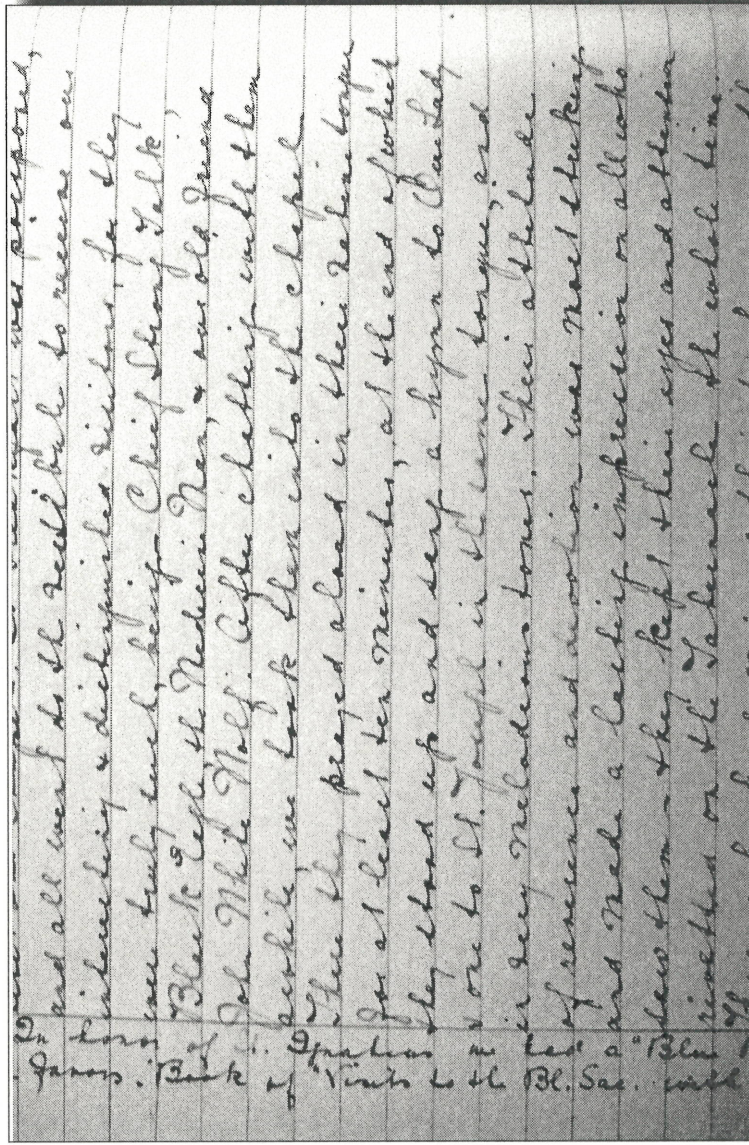 was postponed,
and all went to the vestibule to receive our
interesting & distinguished visitors, for they
were truly such, being Chief Strong Talk,
Black Eagle the Medicine Man, & our old friend
John White Wolf. After chatting with them
awhile we took them into the chapel.
There they prayed aloud in their native tongue
for at least ten minutes, at the end of which
they stood up and sang a hymn to Our Lady
& one to St. Joseph in the same tongue, and
in very melodious tones. Their attitude
of reverence and devotion was most striking
and made a lasting impression on all who
saw them – they kept their eyes and attention
rivetted on the Tabernacle the whole time.
In honor of St. Ignatius we had a "Blue
Favors. Book of "Visits to the Bl. Sac. with